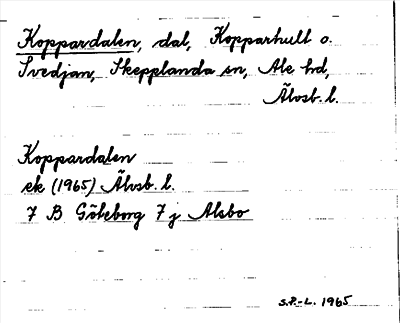 Koppardalen, dal, Kopparhult o.
Svedjan, Skepplanda sn, Ale hd,
Älvsb. l.
Koppardalen
ek (1965) Älvsb. l.
7 B Göteborg 7 j Alsbo
S.P.-L. 1965